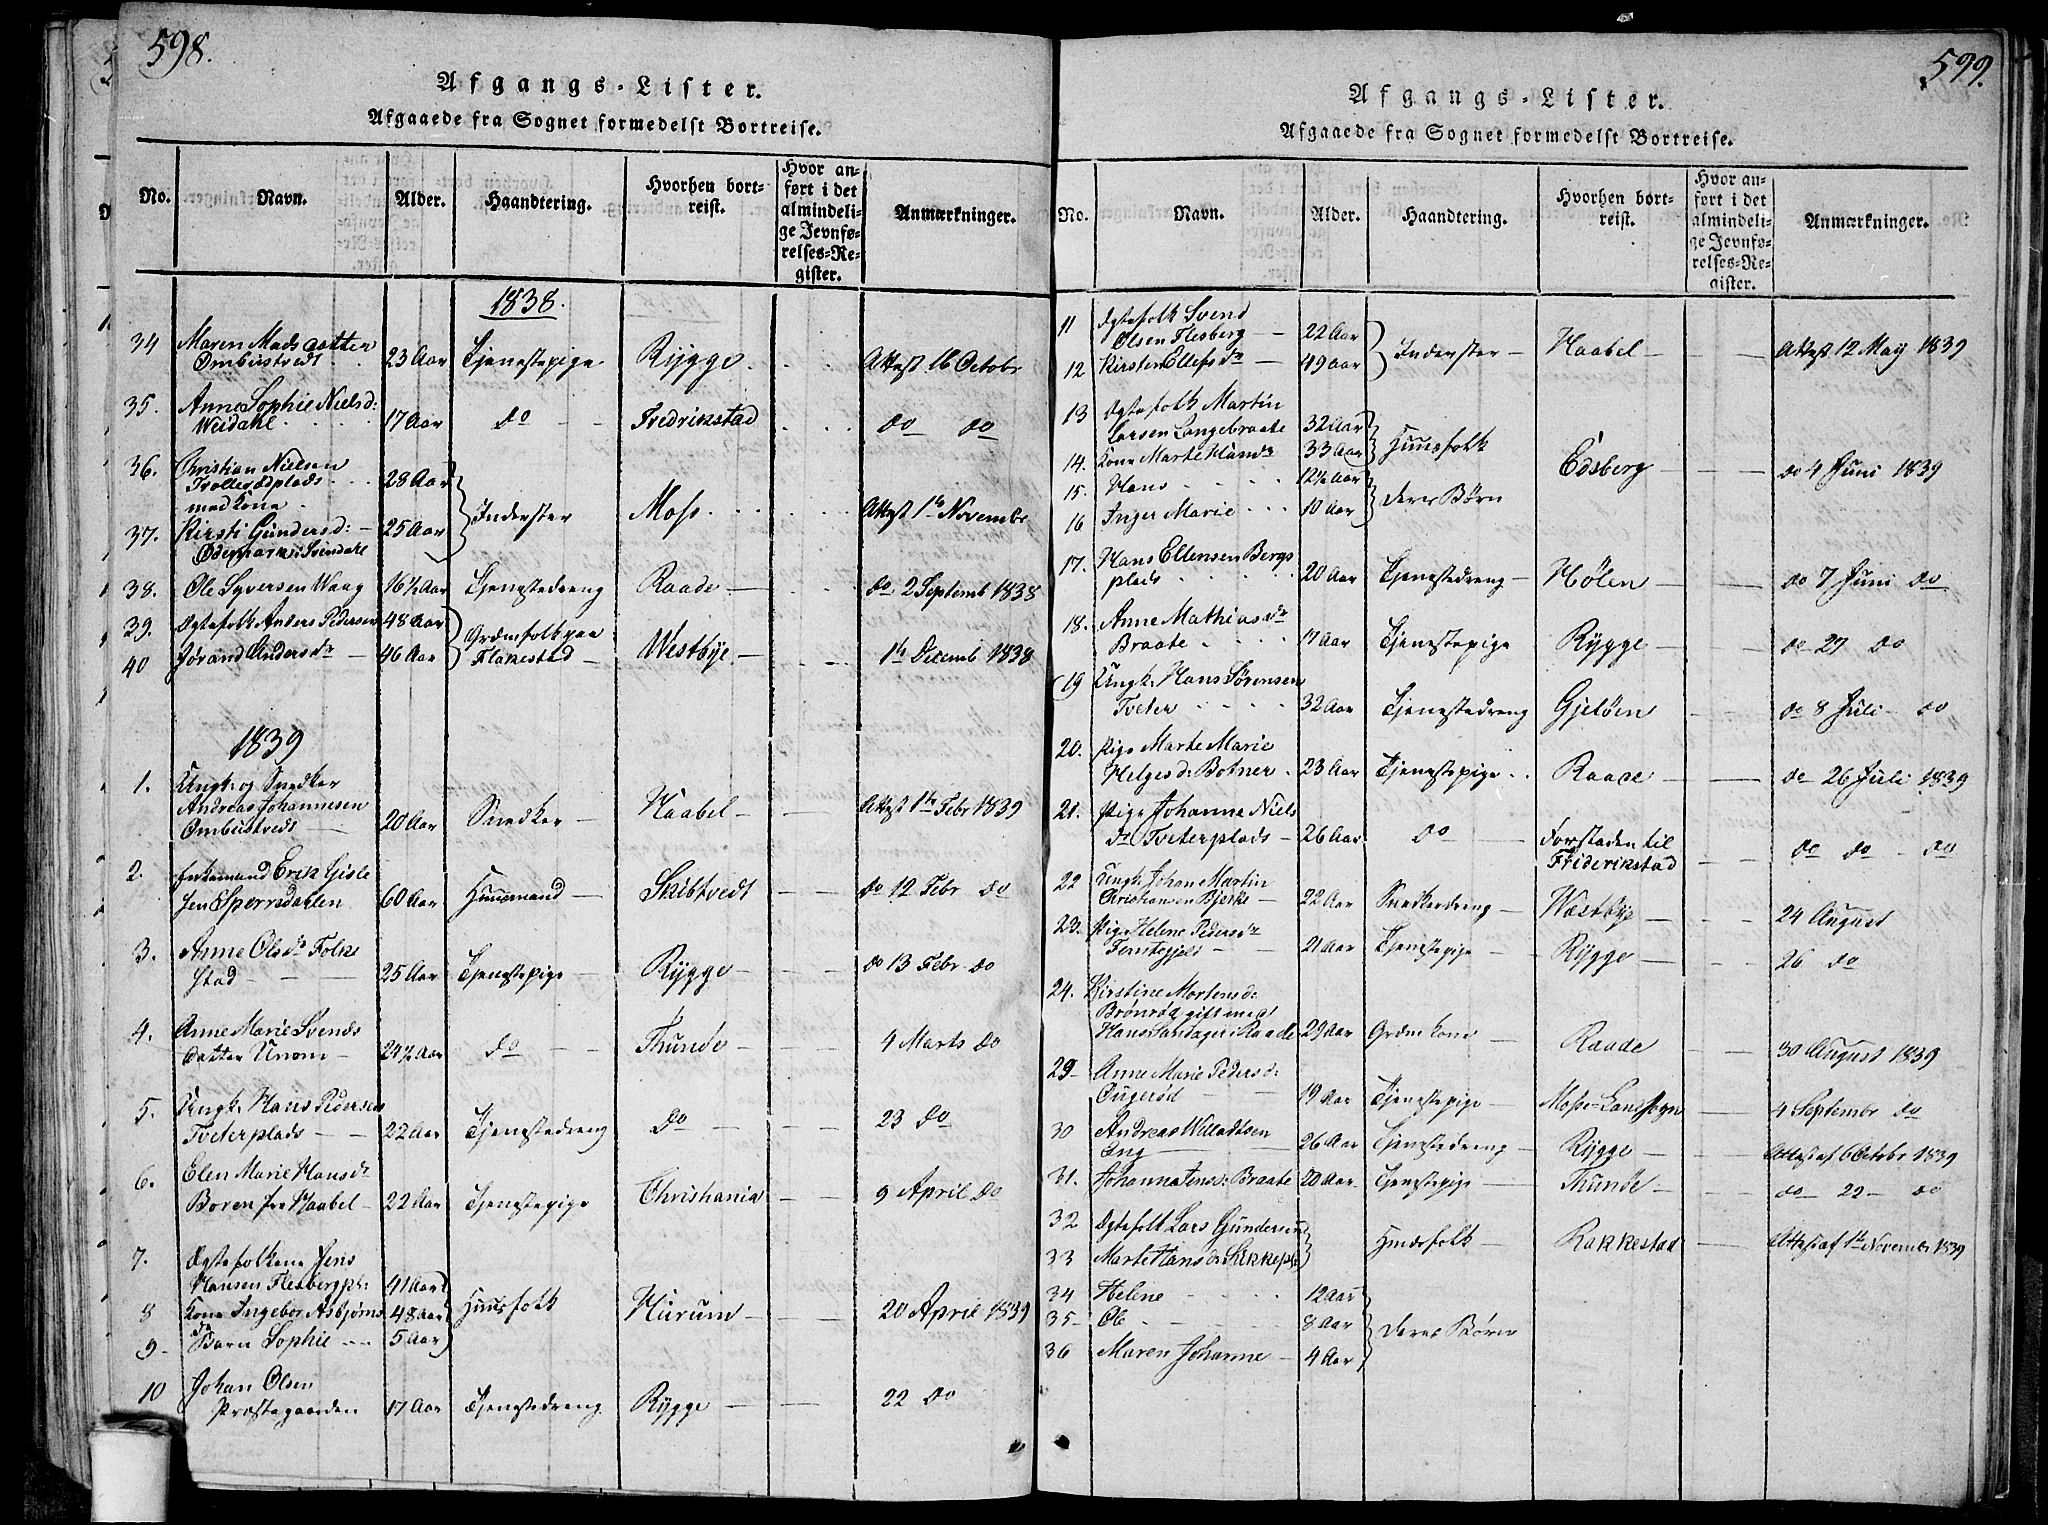 598.
Afgangs-Lister.
Afgaaede fra Sognet formedelst Bortreise.
No. Navn. Alder. Haandtering. Hvorhen bortreist. Hvor anført i det almindelige Jevnførelses-Register. Anmærkninger.
1838.
34 Maren Madsdatter
Ombustvedt 23 Aar Tjenestepige Rygge Attest 16 Octobr
35. Anne Sophie Nielsd:
Weidahl 17 Aar do Fredrikstad do do
36. Christian Nielsen
28 Aar
med Kone
Inderster Moss Attest 1te Novembr
37. Kirsti Gundersd: 25 Aar
Odemark i Svendahl
38. Ole Syversen Waag 16½ Aar Tjenestedreng Raade do 2 Septemb 1838
39. Egtefolk Anders Pedersen 48 Aar
40 Jørand Andersdr 46 Aar
Flakestad Westbye 1te Decemb 1838
1839
1. Ungk: og Snedker
Andreas Johannesen
Ombustvedt 20 Aar Snedker Haabel Attest 1te Febr 1839
2. Enkemand Erik Gisle
sen Sperredalen 60 Aar Huusmand Skibtvedt do 12 Febr do
3. Anne Olsdr Folke
stad 25 Aar Tjenestepige Rygge do 13 Febr do
4. Anne Marie Svends
datter Unom 24½ Aar do Thunøe 4 Marts do
5. Ungk: Hans Pedersen
Tveterplads 22 Aar Tjenestedreng do 23 do
6. Elen Marie Hansdr
Boren fra Haabel 22 Aar Tjenestepige Christiania 9 April do
7. Egtefolkene Jens
Hansen Flesbergpl: 41 Aar
8 Kone Ingebor Asbjørns 48 Aar Huusfolk Hurum 20 April 1839
dr
9 Barn Sophie 5 Aar
10 Johan Olsen
Præstegaarden 17 Aar Tjenestedreng Rygge 22 do
599.
Afgangs-Lister.
Afgaaede fra Sognet formedelst Bortreise.
No. Navn. Alder. Haandtering. Hvorhen bortreist. Hvor anført i det almindelige Jevnførelses-Register. Anmærkninger.
11 Egtefolk Svend
Olsen Flesberg 22 Aar
Inderster Haabel Attest 12 May 1839
12 Kirsten Ellefsdr 49 Aar
13 Egtefolk Martin
Larsen Langebraate 32 Aar
Huusfolk
14. Kone Marte Hansdr 33 Aar
Edsberg do 4 Juni 1839
15. Hans 12½ Aar
deres Børn
16 Inger Marie 10 Aar
17. Hans Ellensen Bergs
plads 20 Aar Tjenestedreng Hølen do 7 Juni do
18. Anne Mathiasdr
Braate 17 Aar Tjenestepige Rygge do 27 do
19 Ungk: Hans Sørensen
Tveter 32 Aar Tjenestedreng Gjeløen do 8 Juli do
20. Pige Marte Marie
Helgesd: Botner 23 Aar Tjenestepige Raade do 26 Juli 1839
21. Pige Johanne Niels
dr Tveterplads 26 Aar do Forstaden til
Friderikstad do do do
22 Ungk: Johan Martin
Christiansen Bjerke 22 Aar Snedkerdreng Wæstbye 24 August
23. Pige Helene Pedersdr
21 Aar Tjenestepige Rygge 26 do
24. Kirstine Mortensd:
Brønrød gift med
Hans Sandager i Raade 29 Aar Raade 30 August 1839
29 Anne Marie Pedersd:
Ougerød 19 Aar Tjenestepige Mosse-Landsogn 4 Septembr do
30 Andreas Willadtsen
Eng 26 Aar Tjenestedreng Rygge Attest af 6 Octobr 1839
31. Johanna Jensd: Braate 20 Aar Tjenestepige Thunøe do 22 do
32 Egtefolk Lars Gundersen
Huusfolk Rakkestad Attest af 1te Novembr 1839
33 Marte Hansdr
34 Helene 12 Aar
35 Ole 8 Aar
deres Børn
36 Maren Johanne 4 Aar